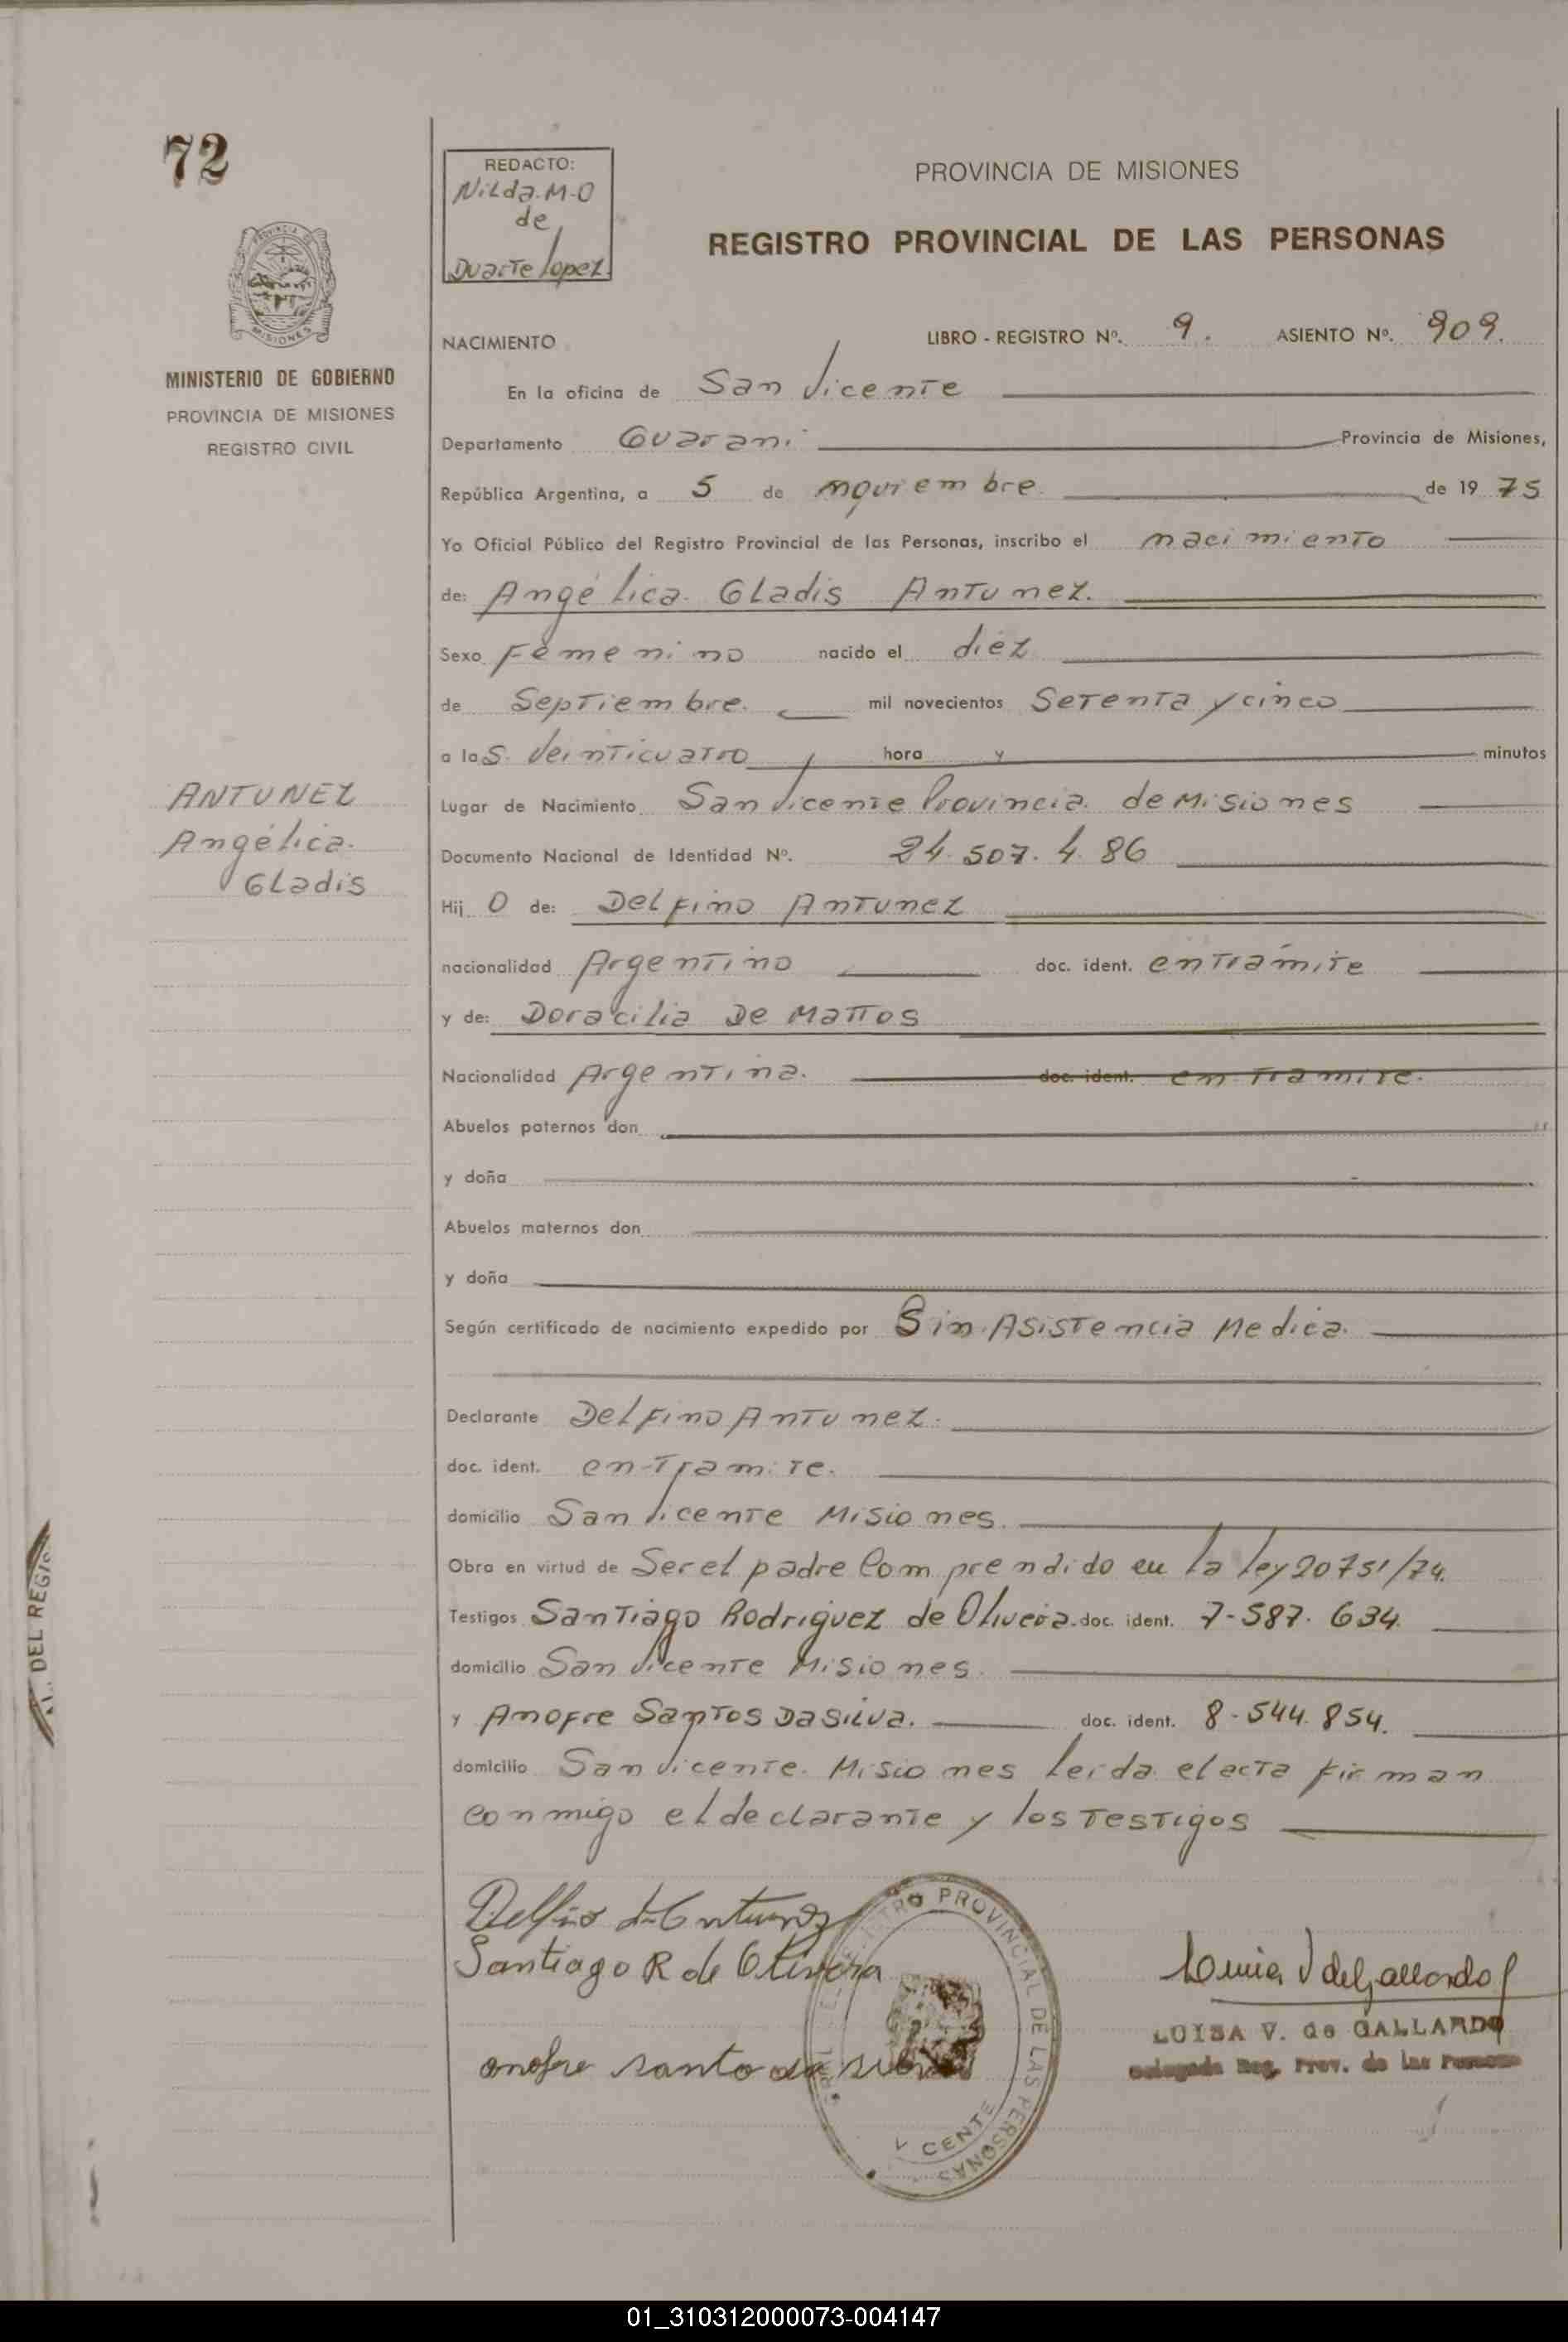 72
REDACTO:
Nilda.M.O
de
Duarte Lopez
PROVINCIA DE MISIONES
REGISTRO PROVINCIAL DE LAS PERSONAS
PROVINCIA DE
MISIONES
MINISTERIO DE GOBIERNO
PROVINCIA DE MISIONES
REGISTRO CIVIL
NACIMIENTO LIBRO - REGISTRO Nº. 9. ASIENTO Nº. 909.
En la oficina de San Vicente
Departamento Guarani Provincia de Misiones,
República Argentina, a 5 de noviembre de 19 75
Yo Oficial Público del Registro Provincial de las Personas, inscribo el nacimiento
de: Angélica Gladis Antunez.
Sexo Femenino nacido el diez
de Septiembre. mil novecientos Setenta y cinco
a las. Veinticuatro hora y minutos
ANTUNEZ
Angélica.
Gladis
Lugar de Nacimiento San Vicente Provincia de Misiones
Documento Nacional de Identidad Nº. 24.507.486
Hij o de: Delfino Antunez
nacionalidad Argentino doc. ident. en tramite
y de: Doracilia De Mattos
Nacionalidad Argentina. doc. ident. en tramite.
Abuelos paternos don
y doña
Abuelos maternos don
y doña
Según certificado de nacimiento expedido por Sin Asistencia Medica.
Declarante Delfino Antunez.
doc. ident. en tramite.
domicilio San Vicente Misiones.
Obra en virtud de Ser el padre Comprendido en la ley 20751/74.
Testigos Santiago Rodriguez de Olivera. doc. ident. 7-587.634.
domicilio San Vicente Misiones.
y Anofre Santos Dasilva. doc. ident. 8-544.854.
domicilio San Vicente. Misiones leida el acta firman
conmigo el declarante y los testigos
Santiago R de Olivera
onofre santo da silva
PROVINCIAL DE LAS PERSONAS
V CENTE
LUISA V. de GALLARDO
Delegada Reg. Prov. de las Personas
DEL REGIS
01_310312000073-004147